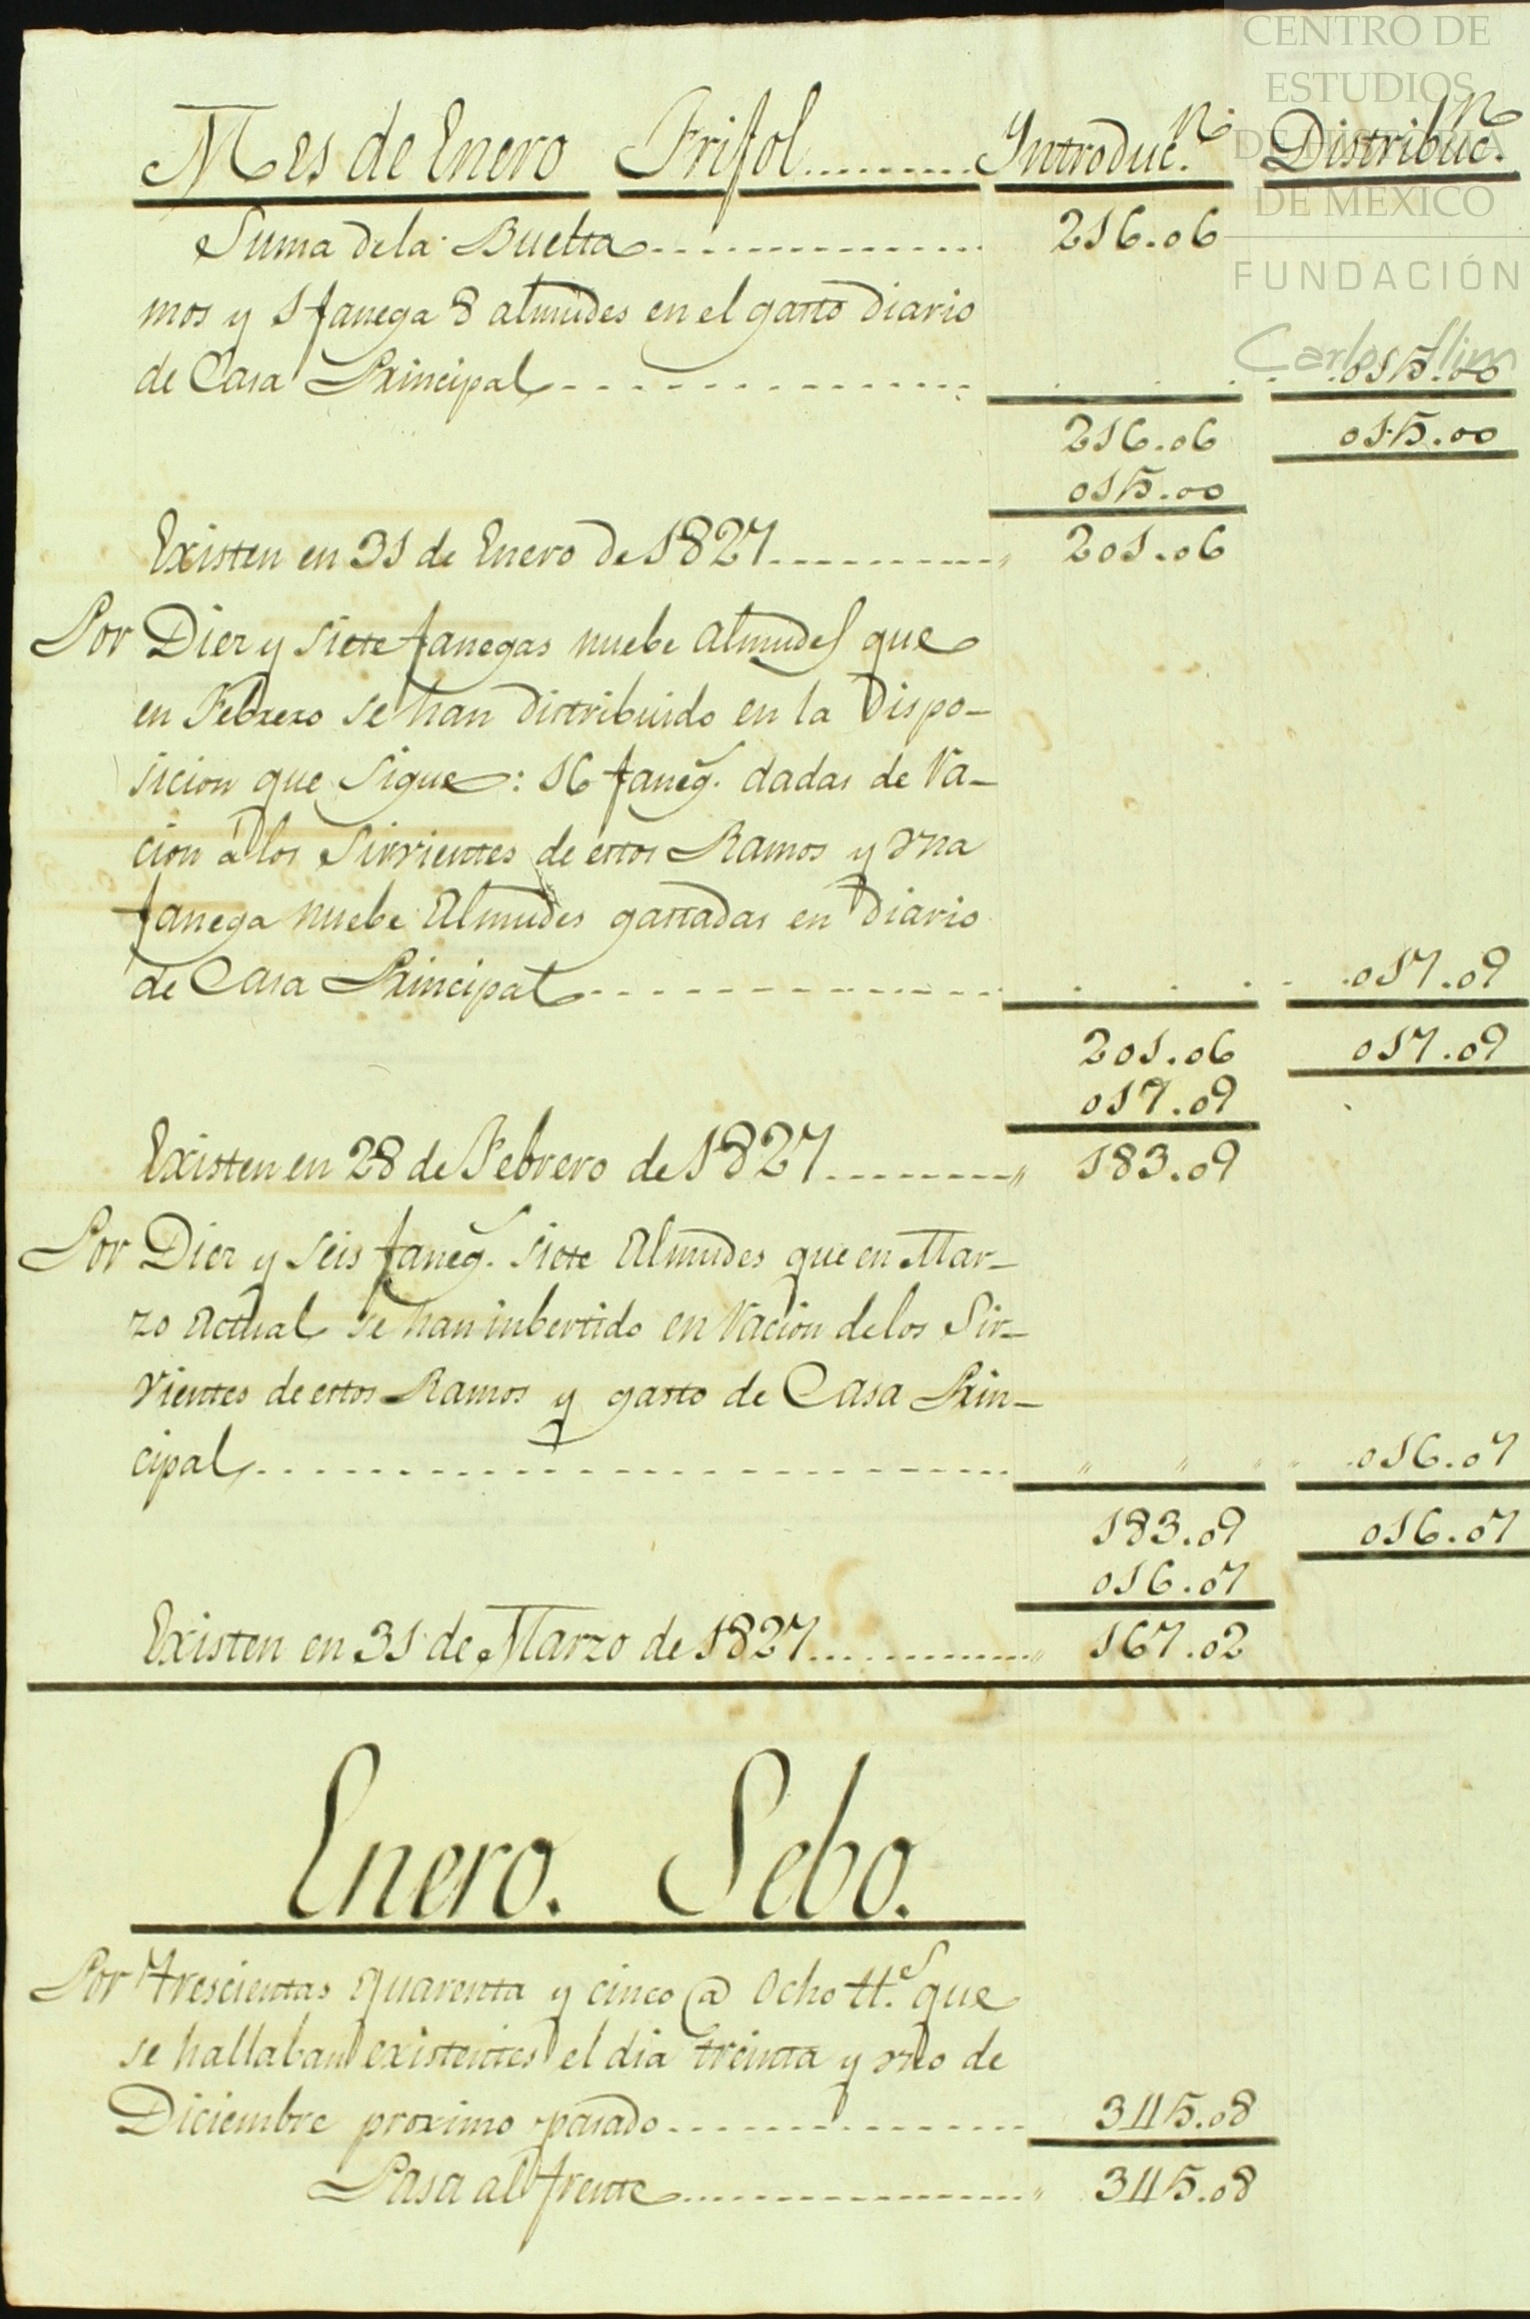 CENTRO DE
ESTUDIOS
DE HISTORIA
DE MEXICO
FUNDACIÓN
Carlos Slim
Mes de Enero Frijol.......... Introduc.n Distribuc.n
Suma dela Buelta---------------- 216.06
mos y 1 fanega 8 almudes en el gasto diario
de Casa Principal---------------- .015.00
216.06 015.00
015.00
Existen en 31 de Enero de 1827------------ 201.06
Por Diez y siete fanegas nuebe almudes que
en Febrero se han distribuido en la Dispo-
sicion que sigue: 16 faneg.s dadas de ra-
cion à los Sirvientes de estos Ramos y una
fanega nuebe Almudes gastadas en diario
de Casa Principal---------------- .017.09
201.06 017.09
017.09
Existen en 28 de Febrero de 1827.......... " 183.09
Por Diez y seis faneg.s siete Almudes que en Mar-
zo actual se han inbertido en racion delos Sir-
vientes de estos Ramos y gasto de Casa Prin-
cipal---------------------------- " " " " .016.07
183.09 016.07
016.07
Existen en 31 de Marzo de 1827............ " 167.02
Enero. Sebo.
Por trescientas quarenta y cinco @ Ocho tt.s que
se hallaban existentes el dia treinta y uno de
Diciembre proximo pasado-------------- 345.08
Pasa al frente.................... " 345.08